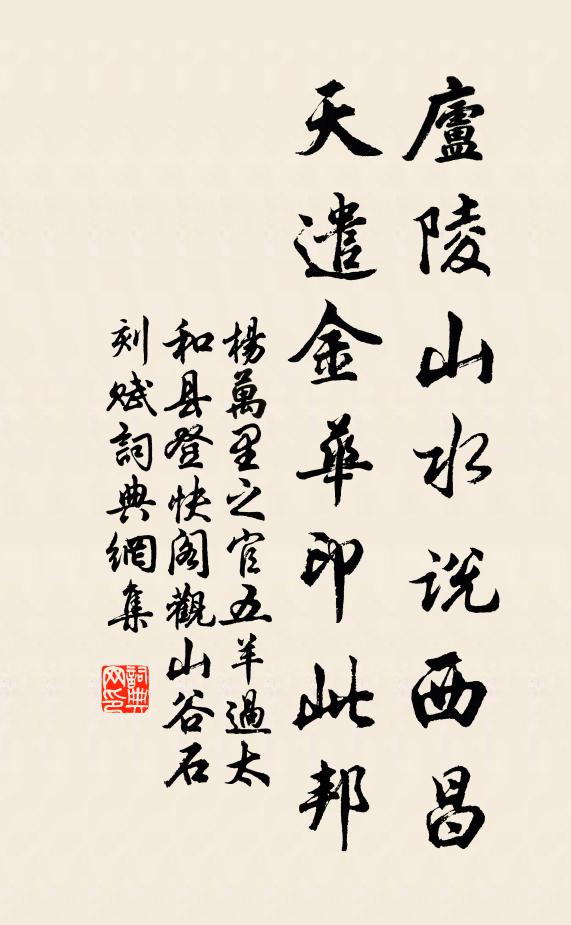 廬陵山水說西昌
天遣金華印此邦
楊萬里之官五羊過太
和县登快阁觀山谷石
刻赋詞典網集
詞典
网印